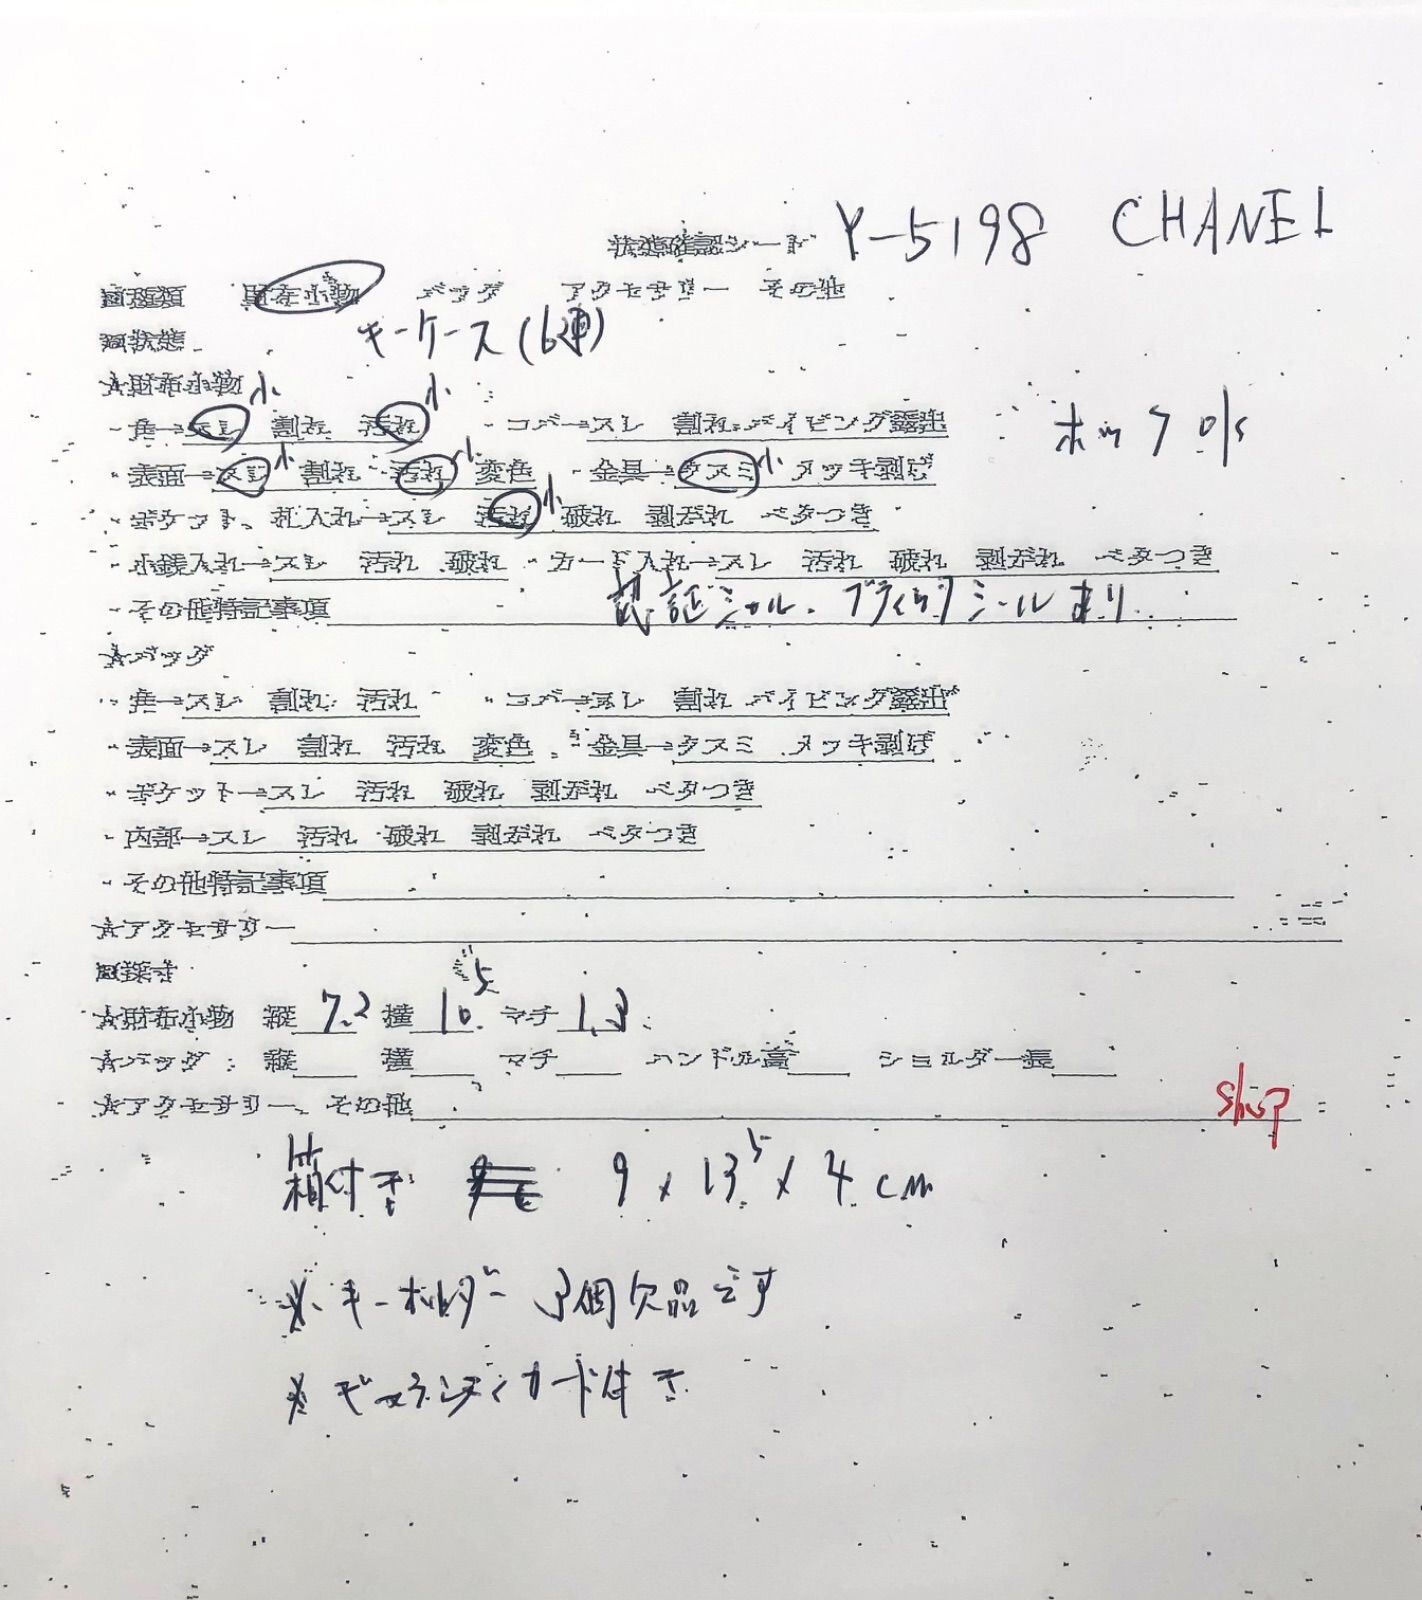 状態確認シート Y-5198 CHANEL
□種類 財布小物 バッグ アクセサリー その他
□状態 キーケース(6連)
☆財布小物
・角→スレ 小 割れ 汚れ 小 ・コバ→スレ 割れ パイピング露出 ホック o/s
・表面→スレ 小 割れ 汚れ 小 変色 ・金具→クスミ 小 メッキ剥げ
・ポケット、札入れ→スレ 汚れ 小 破れ 剥がれ ベタつき
・小銭入れ→スレ 汚れ 破れ ・カード入れ→スレ 汚れ 破れ 剥がれ ベタつき
・その他特記事項 認証シール、ブティックシールあり
☆バッグ
・角→スレ 割れ 汚れ ・コバ→スレ 割れ パイピング露出
・表面→スレ 割れ 汚れ 変色 ・金具→クスミ メッキ剥げ
・ポケット→スレ 汚れ 破れ 剥がれ ベタつき
・内部→スレ 汚れ 破れ 剥がれ ベタつき
・その他特記事項
☆アクセサリー
□採寸
☆財布小物 縦 7.2 横 10.5 マチ 1.3
☆バッグ 縦 横 マチ ハンドル高 ショルダー長
☆アクセサリー、その他 shop
箱付き 9 x 13.5 x 4 cm
※キーホルダー 3個欠品です
※ギャランティカード付き